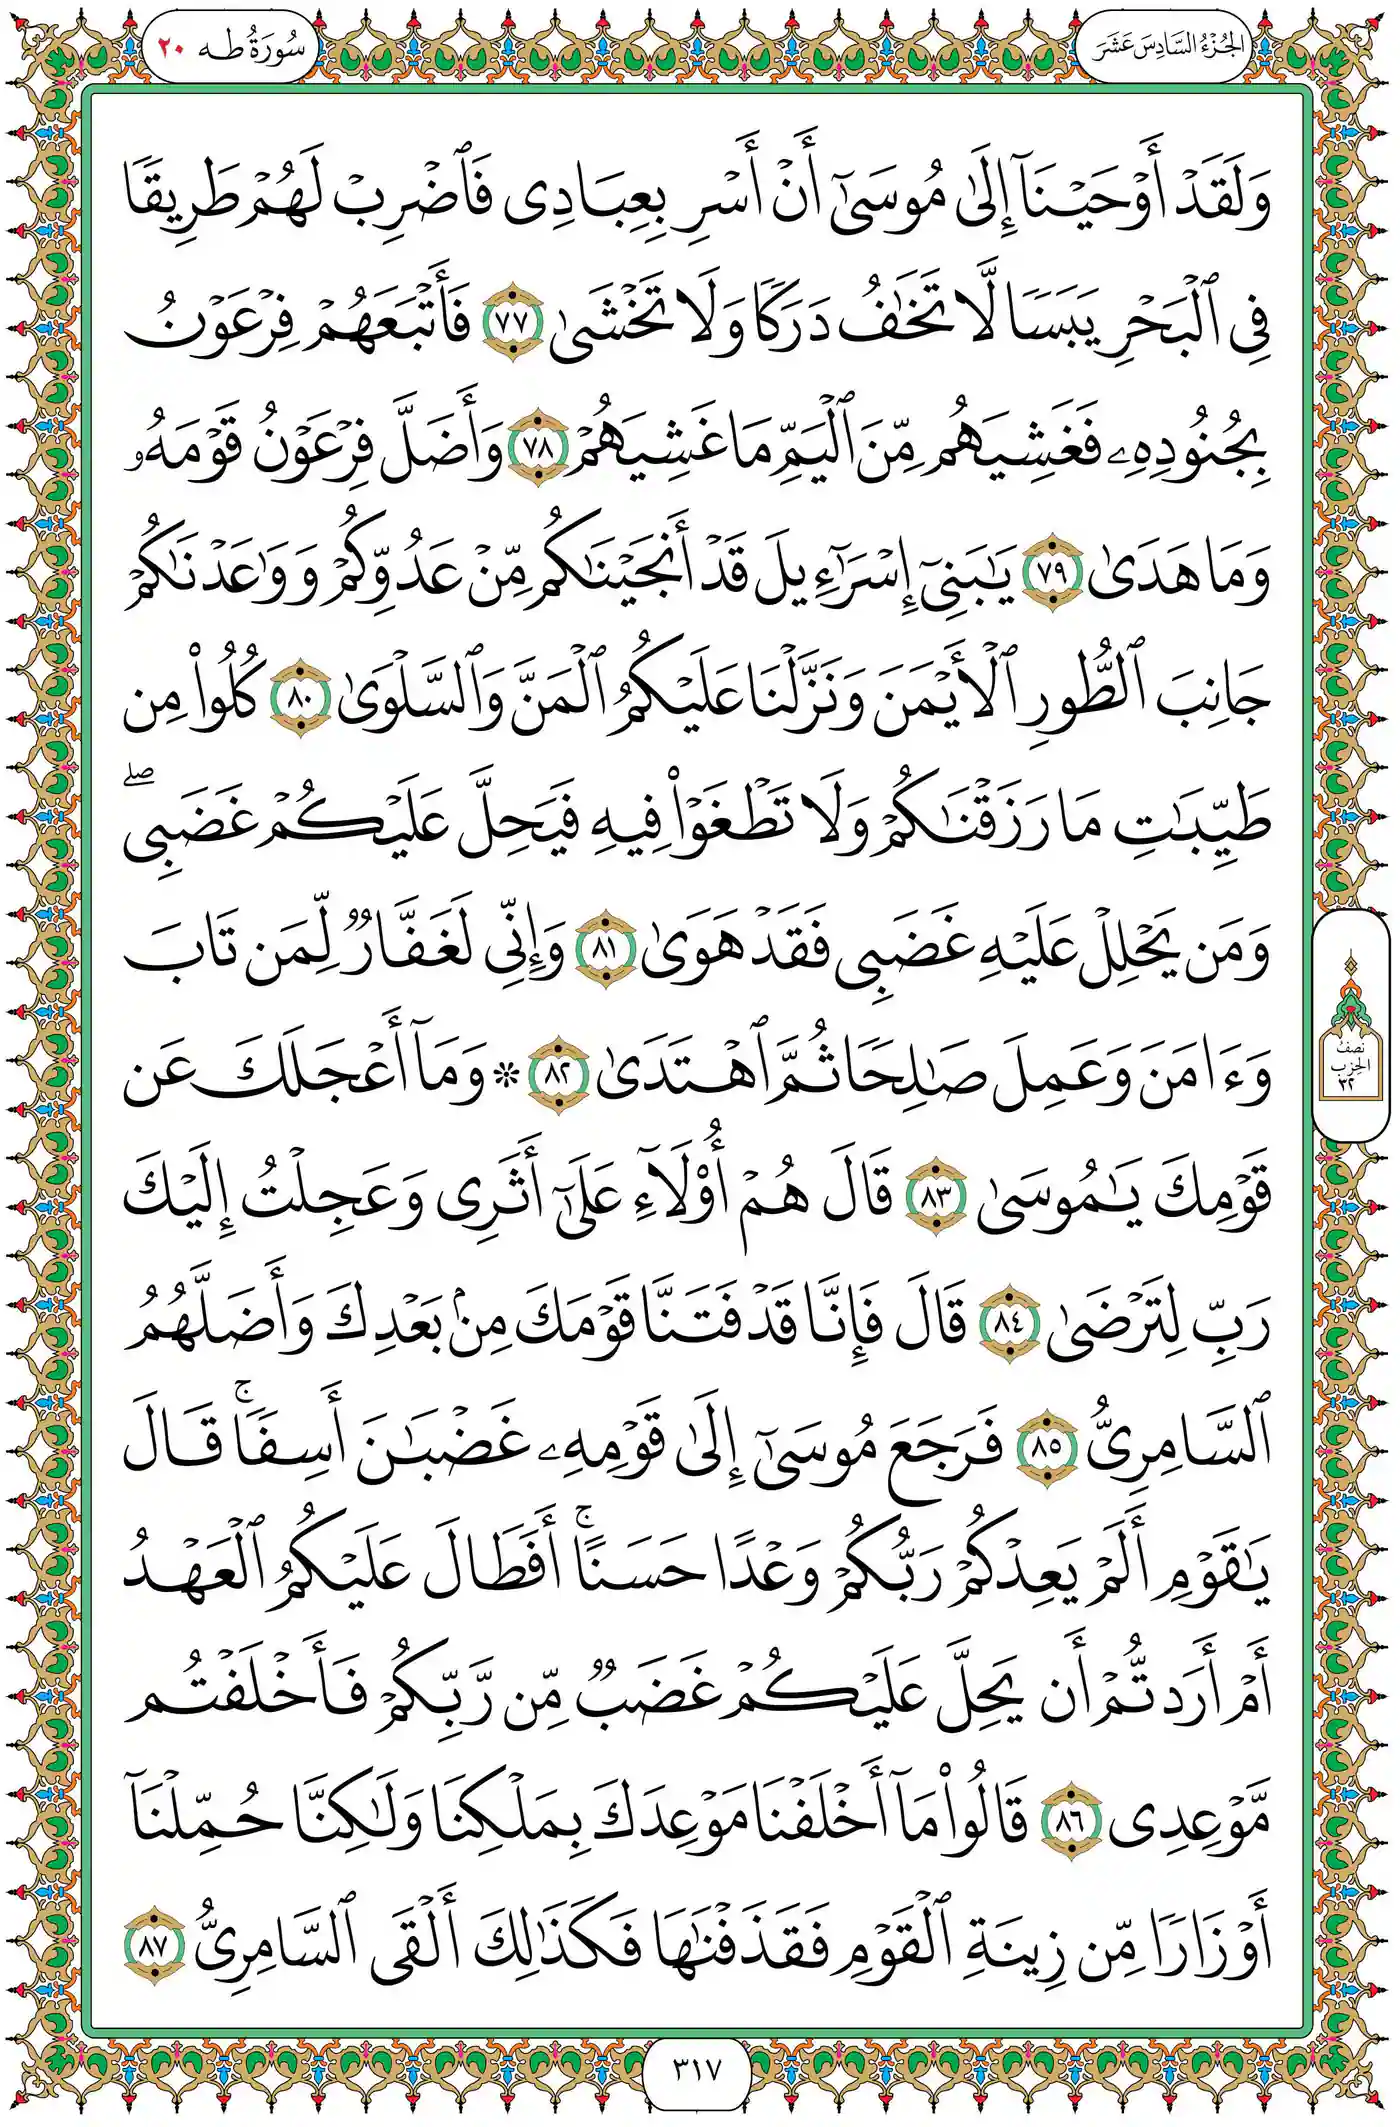 الجُزْءُ السَّادِسَ عَشَرَ
سُورَةُ طه ٢٠
وَلَقَدۡ أَوۡحَيۡنَآ إِلَىٰ مُوسَىٰٓ أَنۡ أَسۡرِ بِعِبَادِي فَٱضۡرِبۡ لَهُمۡ طَرِيقٗا
فِي ٱلۡبَحۡرِ يَبَسٗا لَّا تَخَٰفُ دَرَكٗا وَلَا تَخۡشَىٰ ٧٧ فَأَتۡبَعَهُمۡ فِرۡعَوۡنُ
بِجُنُودِهِۦ فَغَشِيَهُم مِّنَ ٱلۡيَمِّ مَا غَشِيَهُمۡ ٧٨ وَأَضَلَّ فِرۡعَوۡنُ قَوۡمَهُۥ
وَمَا هَدَىٰ ٧٩ يَٰبَنِيٓ إِسۡرَٰٓءِيلَ قَدۡ أَنجَيۡنَٰكُم مِّنۡ عَدُوِّكُمۡ وَوَٰعَدۡنَٰكُمۡ
جَانِبَ ٱلطُّورِ ٱلۡأَيۡمَنَ وَنَزَّلۡنَا عَلَيۡكُمُ ٱلۡمَنَّ وَٱلسَّلۡوَىٰ ٨٠ كُلُواْ مِن
طَيِّبَٰتِ مَا رَزَقۡنَٰكُمۡ وَلَا تَطۡغَوۡاْ فِيهِ فَيَحِلَّ عَلَيۡكُمۡ غَضَبِيۖ
وَمَن يَحۡلِلۡ عَلَيۡهِ غَضَبِي فَقَدۡ هَوَىٰ ٨١ وَإِنِّي لَغَفَّارٞ لِّمَن تَابَ
وَءَامَنَ وَعَمِلَ صَٰلِحٗا ثُمَّ ٱهۡتَدَىٰ ٨٢ * وَمَآ أَعۡجَلَكَ عَن
قَوۡمِكَ يَٰمُوسَىٰ ٨٣ قَالَ هُمۡ أُوْلَآءِ عَلَىٰٓ أَثَرِي وَعَجِلۡتُ إِلَيۡكَ
رَبِّ لِتَرۡضَىٰ ٨٤ قَالَ فَإِنَّا قَدۡ فَتَنَّا قَوۡمَكَ مِنۢ بَعۡدِكَ وَأَضَلَّهُمُ
ٱلسَّامِرِيُّ ٨٥ فَرَجَعَ مُوسَىٰٓ إِلَىٰ قَوۡمِهِۦ غَضۡبَٰنَ أَسِفٗاۚ قَالَ
يَٰقَوۡمِ أَلَمۡ يَعِدۡكُمۡ رَبُّكُمۡ وَعۡدًا حَسَنًاۚ أَفَطَالَ عَلَيۡكُمُ ٱلۡعَهۡدُ
أَمۡ أَرَدتُّمۡ أَن يَحِلَّ عَلَيۡكُمۡ غَضَبٞ مِّن رَّبِّكُمۡ فَأَخۡلَفۡتُم
مَّوۡعِدِي ٨٦ قَالُواْ مَآ أَخۡلَفۡنَا مَوۡعِدَكَ بِمَلۡكِنَا وَلَٰكِنَّا حُمِّلۡنَآ
أَوۡزَارٗا مِّن زِينَةِ ٱلۡقَوۡمِ فَقَذَفۡنَٰهَا فَكَذَٰلِكَ أَلۡقَى ٱلسَّامِرِيُّ ٨٧
نصف
الحزب
٣٢
٣١٧